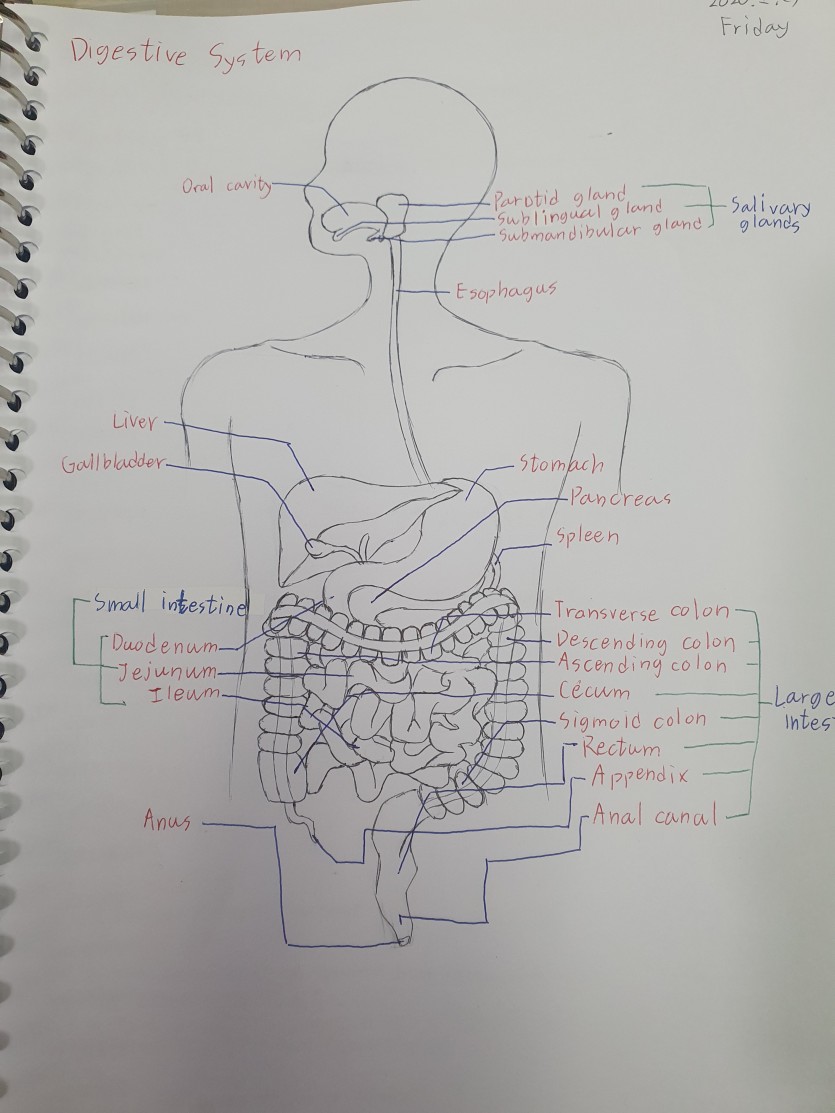 Friday
Digestive System
Oral cavity
Parotid gland
Sublingual gland
Submandibular gland
Salivary
glands
Esophagus
Liver
Gallbladder
Stomach
Pancreas
Spleen
Small intestine
Duodenum
Jejunum
Ileum
Transverse colon
Descending colon
Ascending colon
Cecum
Sigmoid colon
Rectum
Appendix
Anal canal
Large
Intes
Anus